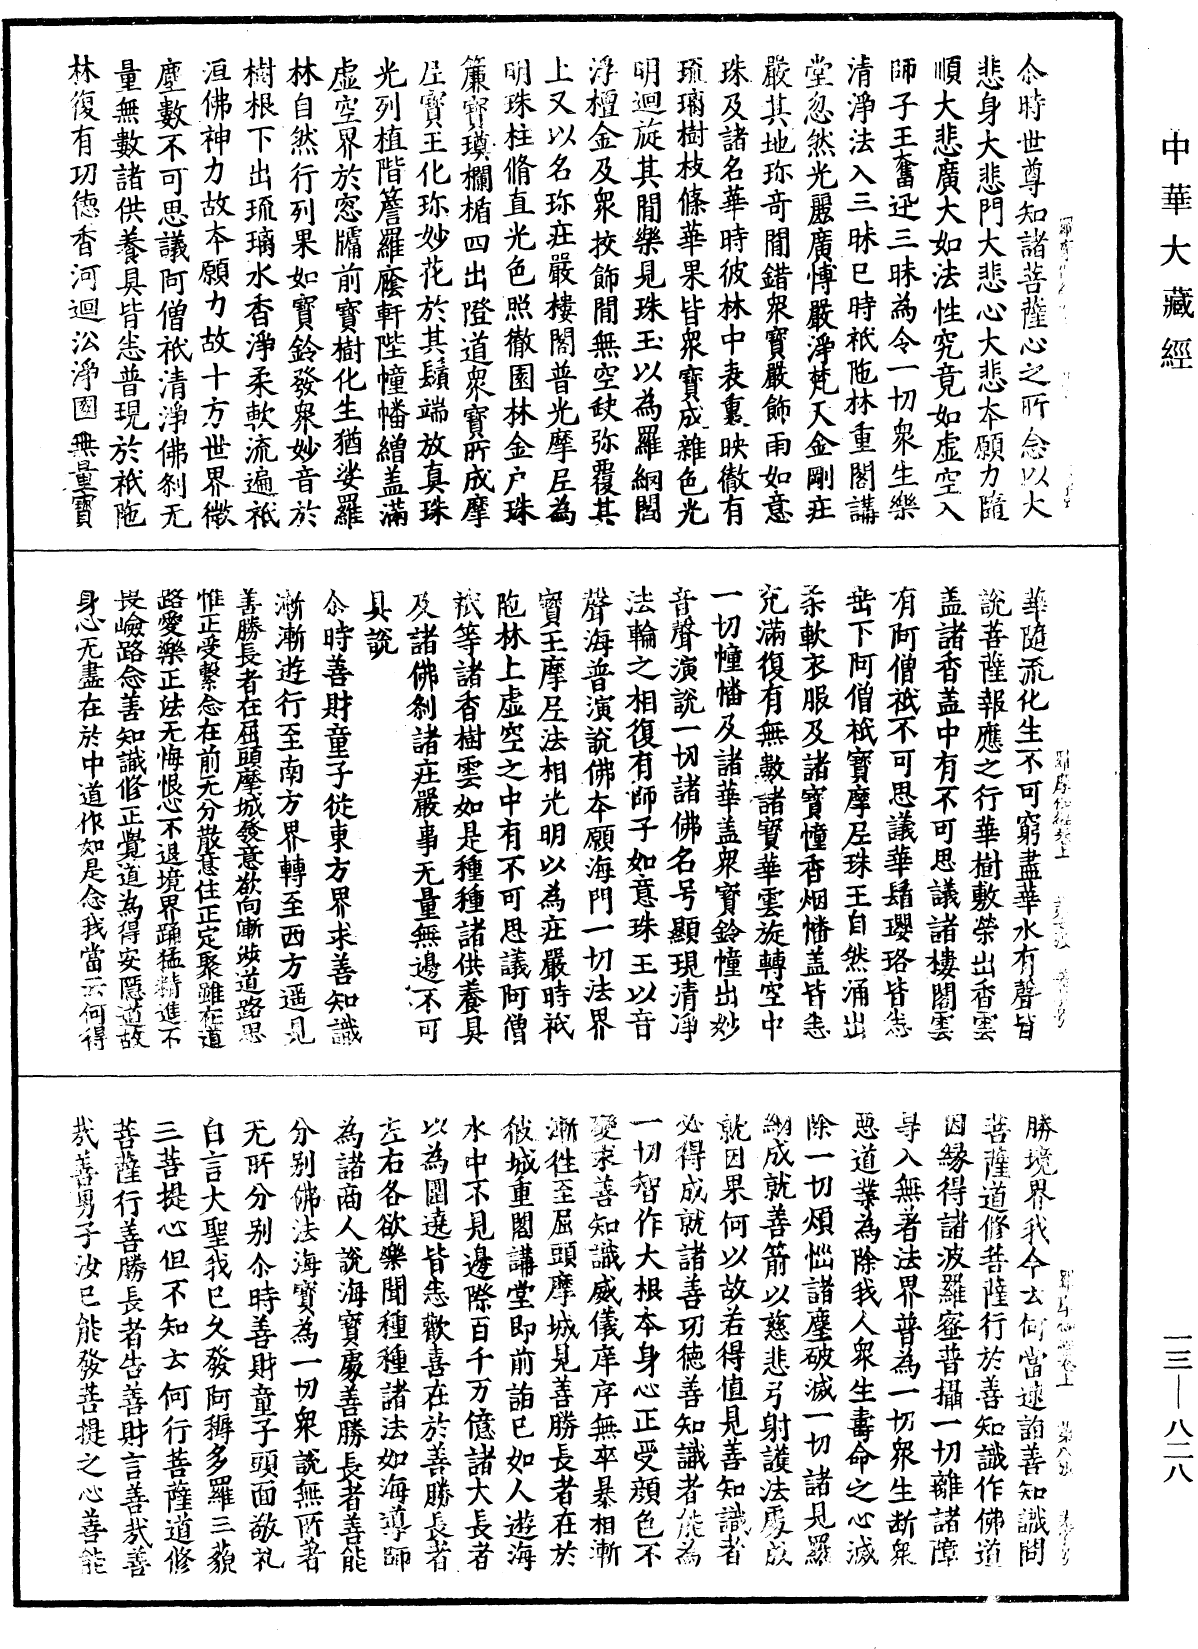 尒時世尊知諸菩薩心之所念以大
悲身大悲門大悲心大悲本願力隨
順大悲廣大如法性究竟如虛空入
師子王奮迅三昧為令一切衆生樂
清淨法入三昧已時祇陁林重閣講
堂忽然光麗廣博嚴淨梵天金剛㽵
嚴其地珎竒閒錯衆寶嚴飾雨如意
珠及諸名華時彼林中表裏映徹有
琉璃樹枝條華果皆衆寶成雜色光
明迴旋其閒樂見珠玉以為羅網閻
浮檀金及衆挍飾閒無空缺弥覆其
上又以名珎㽵嚴樓閣普光摩尼為
明珠柱脩直光色照徹園林金戶珠
簾寶瑱欄楯四出隥道衆寶所成摩
尼寶王化珎妙花於其鬚端放真珠
光列植階簷羅廕軒陛幢幡繒盖滿
虛空界於窓牖前寶樹化生猶娑羅
林自然行列果如寶鈴發衆妙音於
樹根下出琉璃水香淨柔軟流遍祇
洹佛神力故本願力故十方世界微
塵數不可思議阿僧祇清淨佛刹无
量無數諸供養具皆悉普現於祇陁
林復有功德香河迴㳂淨園無量寶
華隨流化生不可窮盡華水有聲皆
說菩薩報應之行華樹敷榮出香雲
盖諸香盖中有不可思議諸樓閣雲
有阿僧祇不可思議華鬘瓔珞皆悉
垂下阿僧祇寶摩尼珠王自然涌出
柔軟衣服及諸寶幢香烟幡盖皆悉
充滿復有無數諸寶華雲旋轉空中
一切幢幡及諸華盖衆寶鈴幢出妙
音聲演說一切諸佛名号顯現清淨
法輪之相復有師子如意珠王以音
聲海普演說佛本願海門一切法界
寶王摩尼法相光明以為㽵嚴時祇
陁林上虛空之中有不可思議阿僧
祇等諸香樹雲如是種種諸供養具
及諸佛刹諸㽵嚴事无量無邊不可
具說
尒時善財童子從東方界求善知識
漸漸遊行至南方界轉至西方遥見
善勝長者在屈頭摩城發意欲向漸涉道路思
惟正受繫念在前无分散意住正定聚雖在道
路愛樂正法无悔恨心不退境界踊猛精進不
畏嶮路念善知識修正覺道為得安隱道故
身心无盡在於中道作如是念我當云何得
勝境界我今云何當速詣善知識問
菩薩道修菩薩行於善知識作佛道
因緣得諸波羅蜜普攝一切離諸障
㝵入無著法界普為一切衆生断衆
惡道業為除我人衆生壽命之心滅
除一切煩惱諸塵破滅一切諸見羅
網成就善箭以慈悲弓射護法處成
就因果何以故若得值見善知識者
必得成就諸善功德善知識者能為
一切智作大根本身心正受顔色不
變求善知識威儀庠序無卒暴相漸
漸往至屈頭摩城見善勝長者在於
彼城重閣講堂即前詣已如人遊海
水中不見邊際百千万億諸大長者
以為圍遶皆悉歡喜在於善勝長者
左右各欲樂聞種種諸法如海導師
為諸商人說海寶處善勝長者善能
分别佛法海寶為一切衆說無所著
无所分别尒時善財童子頭面敬礼
白言大聖我已久發阿耨多羅三藐
三菩提心但不知云何行菩薩道修
菩薩行善勝長者告善財言善㢤善
㢤善男子汝已能發菩提之心善能
中華大藏經
一三—八二八